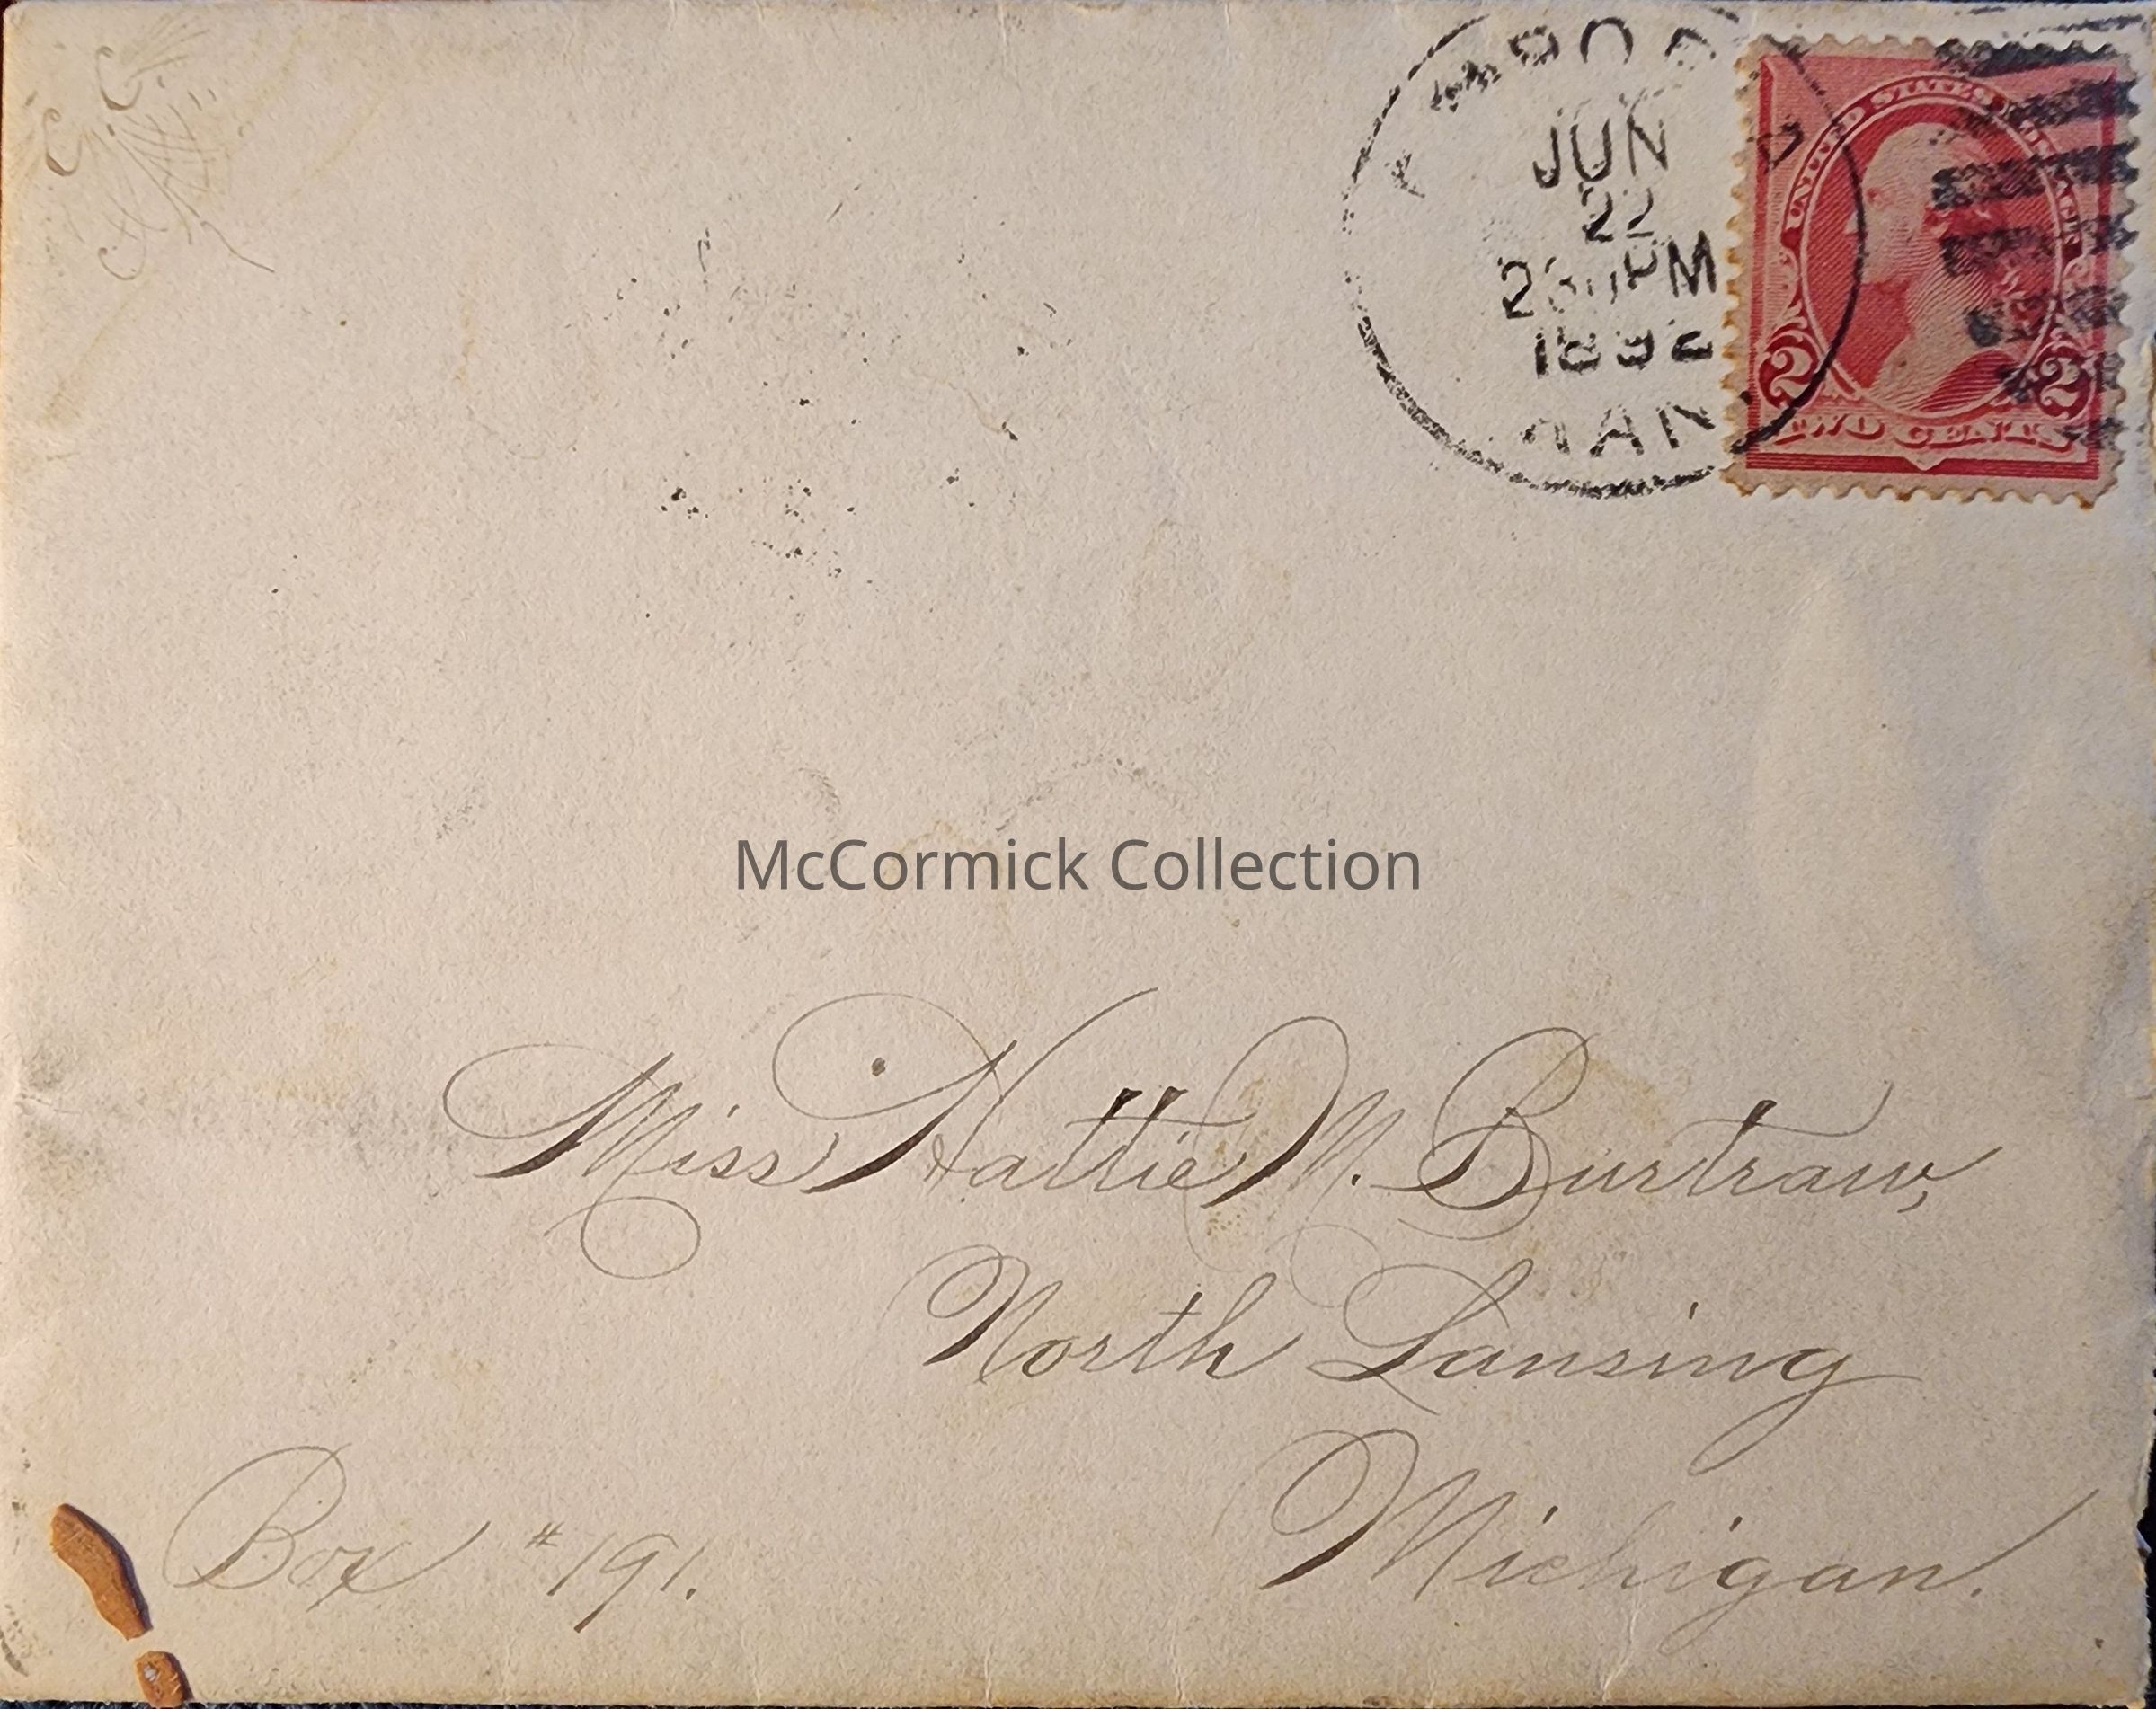 JUN
22
1892
UNITED STATES
2 2
TWO CENTS
McCormick Collection
Miss Hattie M. Burtraw,
North Lansing
Michigan.
Box #191.